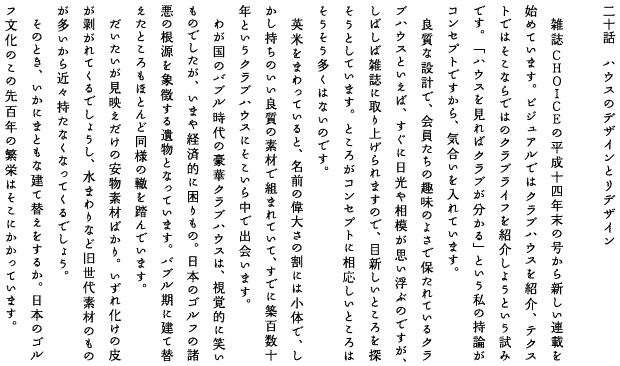 二十話　ハウスのデザインとリデザイン
雑誌CHOICEの平成十四年末の号から新しい連載を
始めています。ビジュアルではクラブハウスを紹介、テクス
トではそこならではのクラブライフを紹介しようという試み
です。「ハウスを見ればクラブが分かる」という私の持論が
コンセプトですから、気合いを入れています。
良質な設計で、会員たちの趣味のよさで保たれているクラ
ブハウスといえば、すぐに日光や相模が思い浮ぶのですが、
しばしば雑誌に取り上げられますので、目新しいところを探
そうとしています。ところがコンセプトに相応しいところは
そうそう多くはないのです。
英米をまわっていると、名前の偉大さの割には小体で、し
かし持ちのいい良質の素材で組まれていて、すでに築百数十
年というクラブハウスにそこいら中で出会います。
わが国のバブル時代の豪華クラブハウスは、視覚的に笑い
ものでしたが、いまや経済的に困りもの。日本のゴルフの諸
悪の根源を象徴する遺物となっています。バブル期に建て替
えたところもほとんど同様の轍を踏んでいます。
だいたいが見映えだけの安物素材ばかり。いずれ化けの皮
が剥がれてくるでしょうし、水まわりなど旧世代素材のもの
が多いから近々持たなくなってくるでしょう。
そのとき、いかにまともな建て替えをするか。日本のゴル
フ文化のこの先百年の繁栄はそこにかかっています。